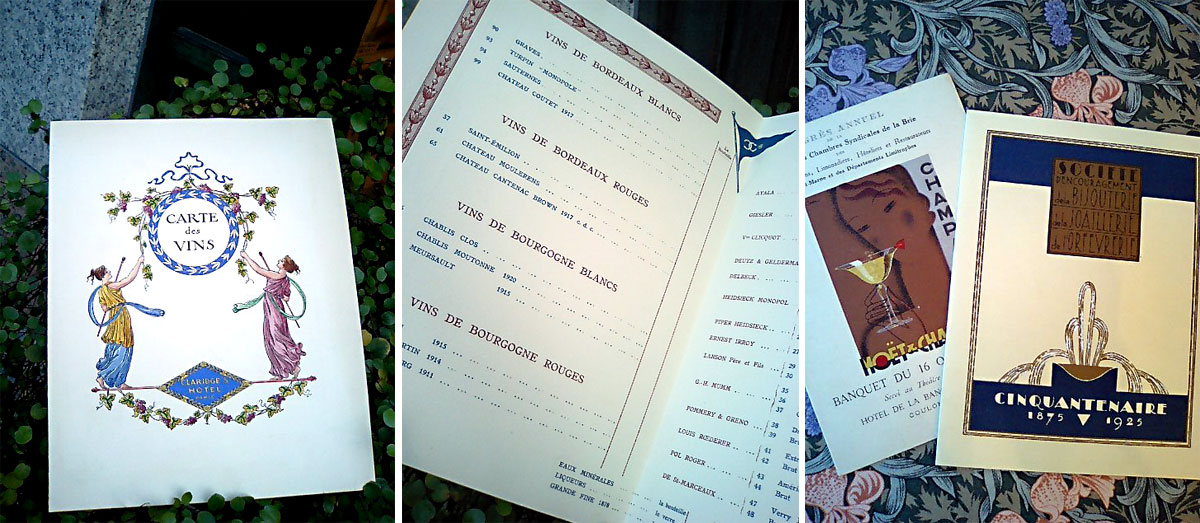 CARTE
des
VINS
CLARIDGE'S
HOTEL
PARIS
VINS DE BORDEAUX BLANCS
90 GRAVES
93 TURPIN-MONOPOLE
94 SAUTERNES
99 CHATEAU COUTET 1917
VINS DE BORDEAUX ROUGES
57 SAINT-EMILION
61 CHATEAU MOULERENS
65 CHATEAU CANTENAC BROWN 1917 c.d.c.
VINS DE BOURGOGNE BLANCS
CHABLIS CLOS
CHABLIS MOUTONNE 1920
MEURSAULT 1915
VINS DE BOURGOGNE ROUGES
1915
1914
1911
EAUX MINÉRALES
LIQUEURS
GRANDE FINE 1878
la bouteille
le verre
AYALA
GIESLER
Vve CLICQUOT
DEUTZ & GELDERMA
DELBECK
HEIDSIECK MONOPOL
PIPER HEIDSIECK
ERNEST IRROY 27
LANSON Père et Fils 29
30
G.-H. MUMM 35
36
37
POMMERY & GRENO 38
39
LOUIS RŒDERER 41 Ext
42 Brut
POL ROGER 43 Améri
44 Brut
DE St-MARCEAUX 47 Verry
48 Brut
GRÈS ANNUEL
Chambres Syndicales de la Brie
Limonadiers, Hôteliers et Restaurateurs
Marne et des Départements Limitrophes
CHAMP
MOËT & CHA
BANQUET DU 16 O
Servi au Théâtre
HOTEL DE LA BAN
COULO
SOCIETE
D'ENCOURAGEMENT
de la BIJOUTERIE
de la JOAILLERIE
de l'ORFEVRERIE
CINQUANTENAIRE
1875 1925